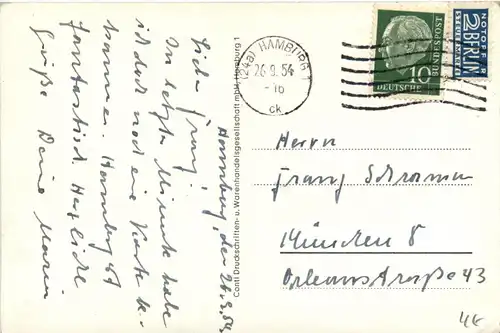 Hamburg, den 26.9.54
Lieber Franz,
In letzter Minute habe
ich doch noch eine Karte be-
kommen. Hamburg ist
fantastisch. Herzliche
Grüße Deine Maria
Conti Druckschriften- u. Warenhandelsgesellschaft mbH, Hamburg 1
(24a) HAMBURG 1
26.9.54
-16
ck
10
DEUTSCHE
BUNDESPOST
NOTOPFER
2 BERLIN
STEUERMARKE
Herrn
Franz
München 8
Orleansstraße 43
4€